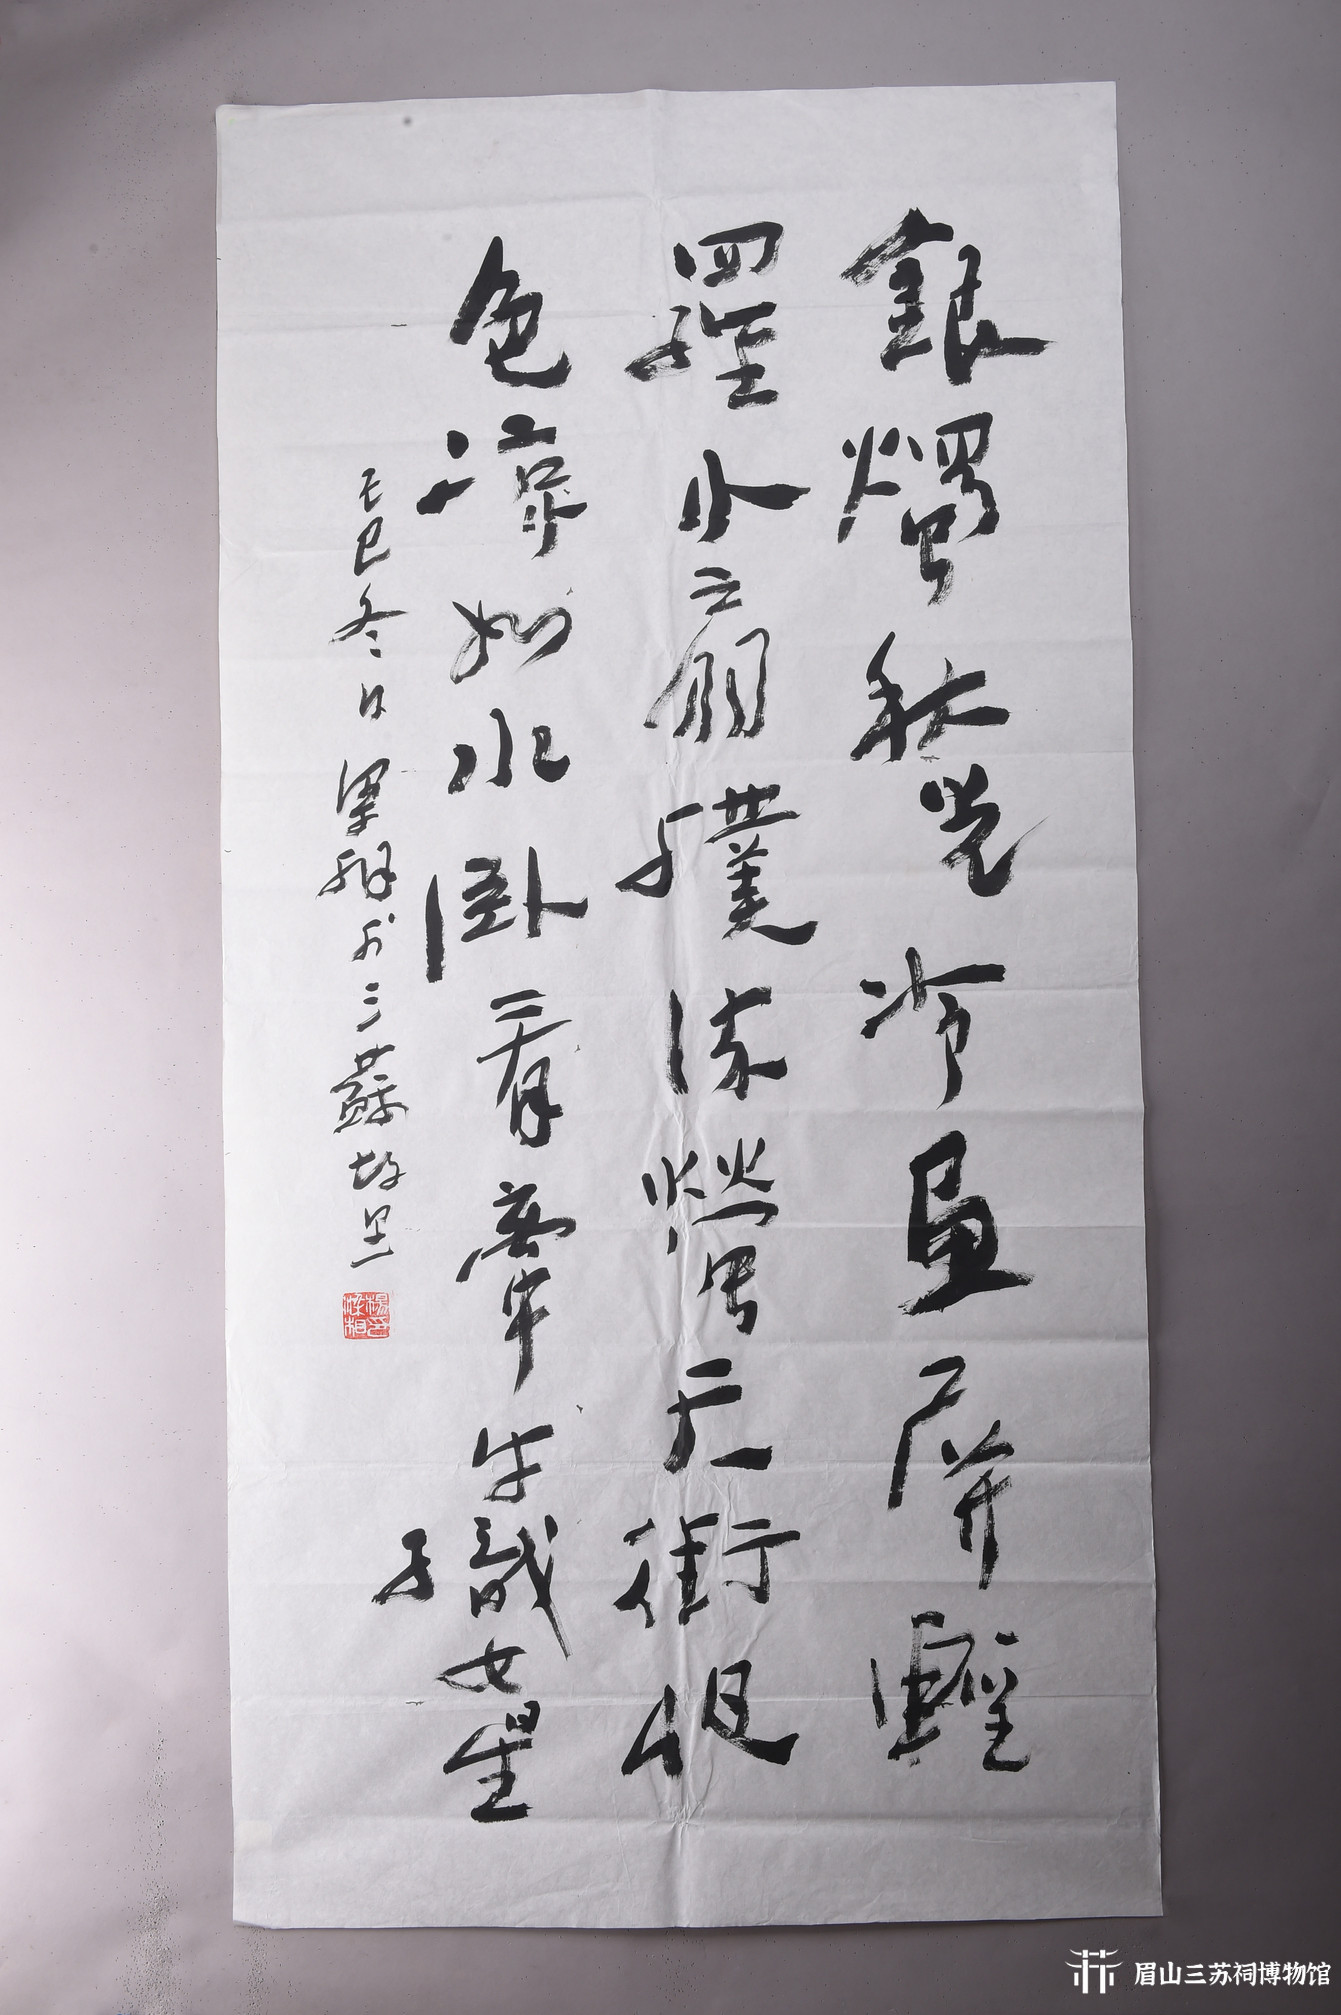 銀燭秋光冷畫屏輕
羅小扇撲流螢天街夜
色涼如水卧看牽牛織女星
己巳冬日梁相於三蘇故里
眉山三苏祠博物馆